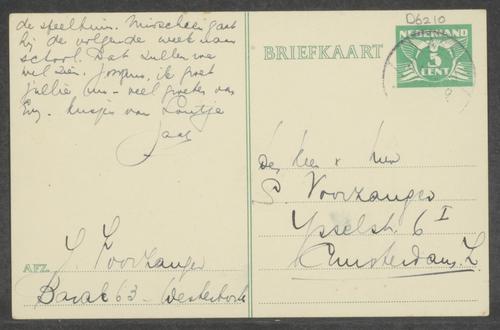 D6210
NEDERLAND
5
CENT
BRIEFKAART
de speeltuin. Misschien gaat
hij de volgende week naar
school. Dat zullen we
wel zien. ik groet
jullie veel groeten van
kusjes van
Jaap
Den Heer +
Voorzanger
Ysselstr. 6 I
Amsterdam. Z.
AFZ. J. Voorzanger
Barak 63 - Westerbork